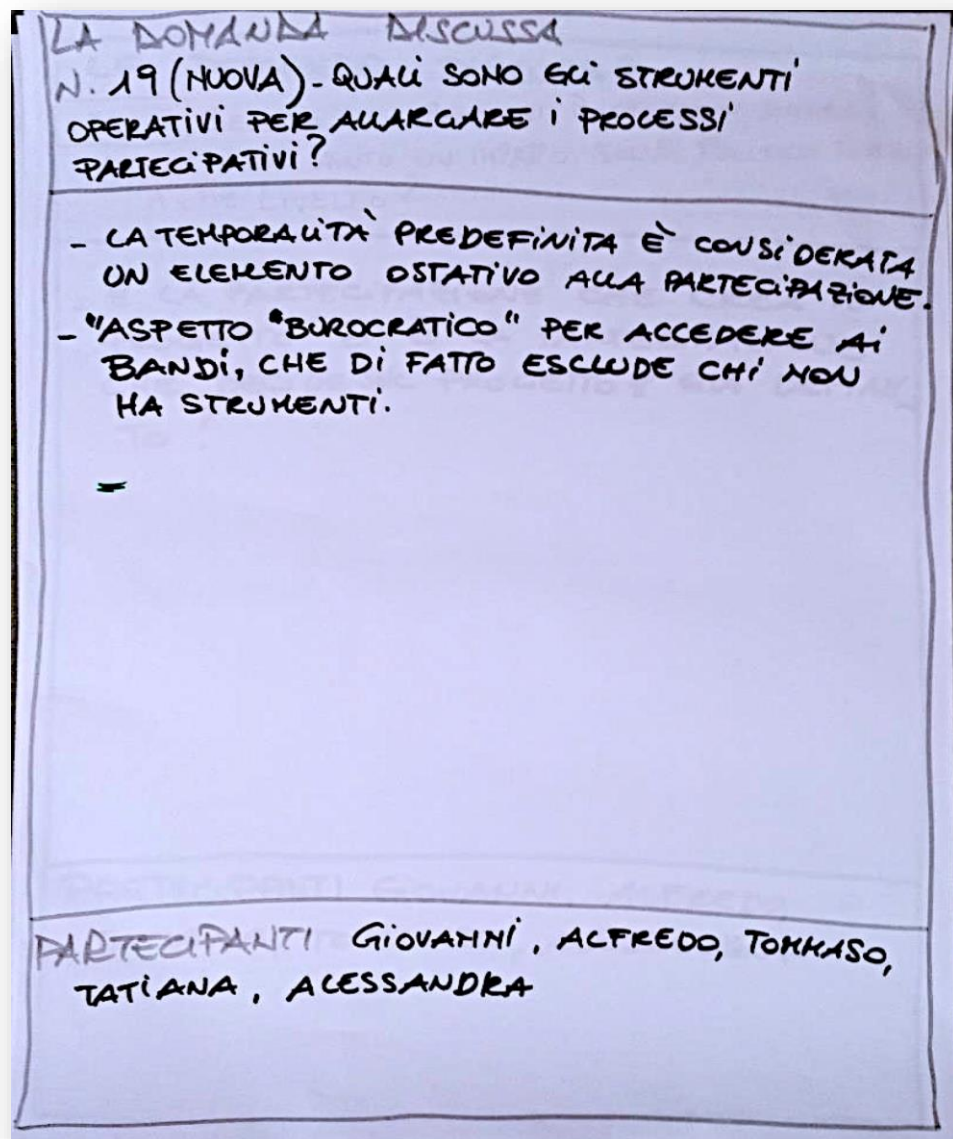 LA DOMANDA DISCUSSA
N. 19 (NUOVA) - QUALI SONO GLI STRUMENTI
OPERATIVI PER ALLARGARE I PROCESSI
PARTECIPATIVI?
- LA TEMPORALITÀ PREDEFINITA È CONSIDERATA
UN ELEMENTO OSTATIVO ALLA PARTECIPAZIONE.
- "ASPETTO "BUROCRATICO" PER ACCEDERE AI
BANDI, CHE DI FATTO ESCLUDE CHI NON
HA STRUMENTI.
-
PARTECIPANTI GIOVANNI, ALFREDO, TOMMASO,
TATIANA, ALESSANDRA